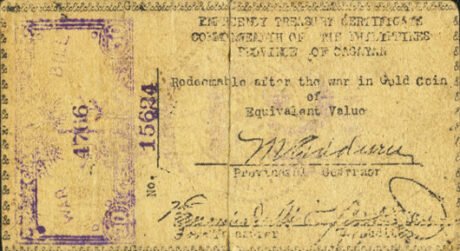 EMERGENCY TREASURY CERTIFICATE
COMMONWEALTH OF THE PHILIPPINES
PROVINCE OF CAGAYAN
Redeemable after the war in Gold Coin
of
Equivalent Value
Provincial
No. 15624
WAR
4766